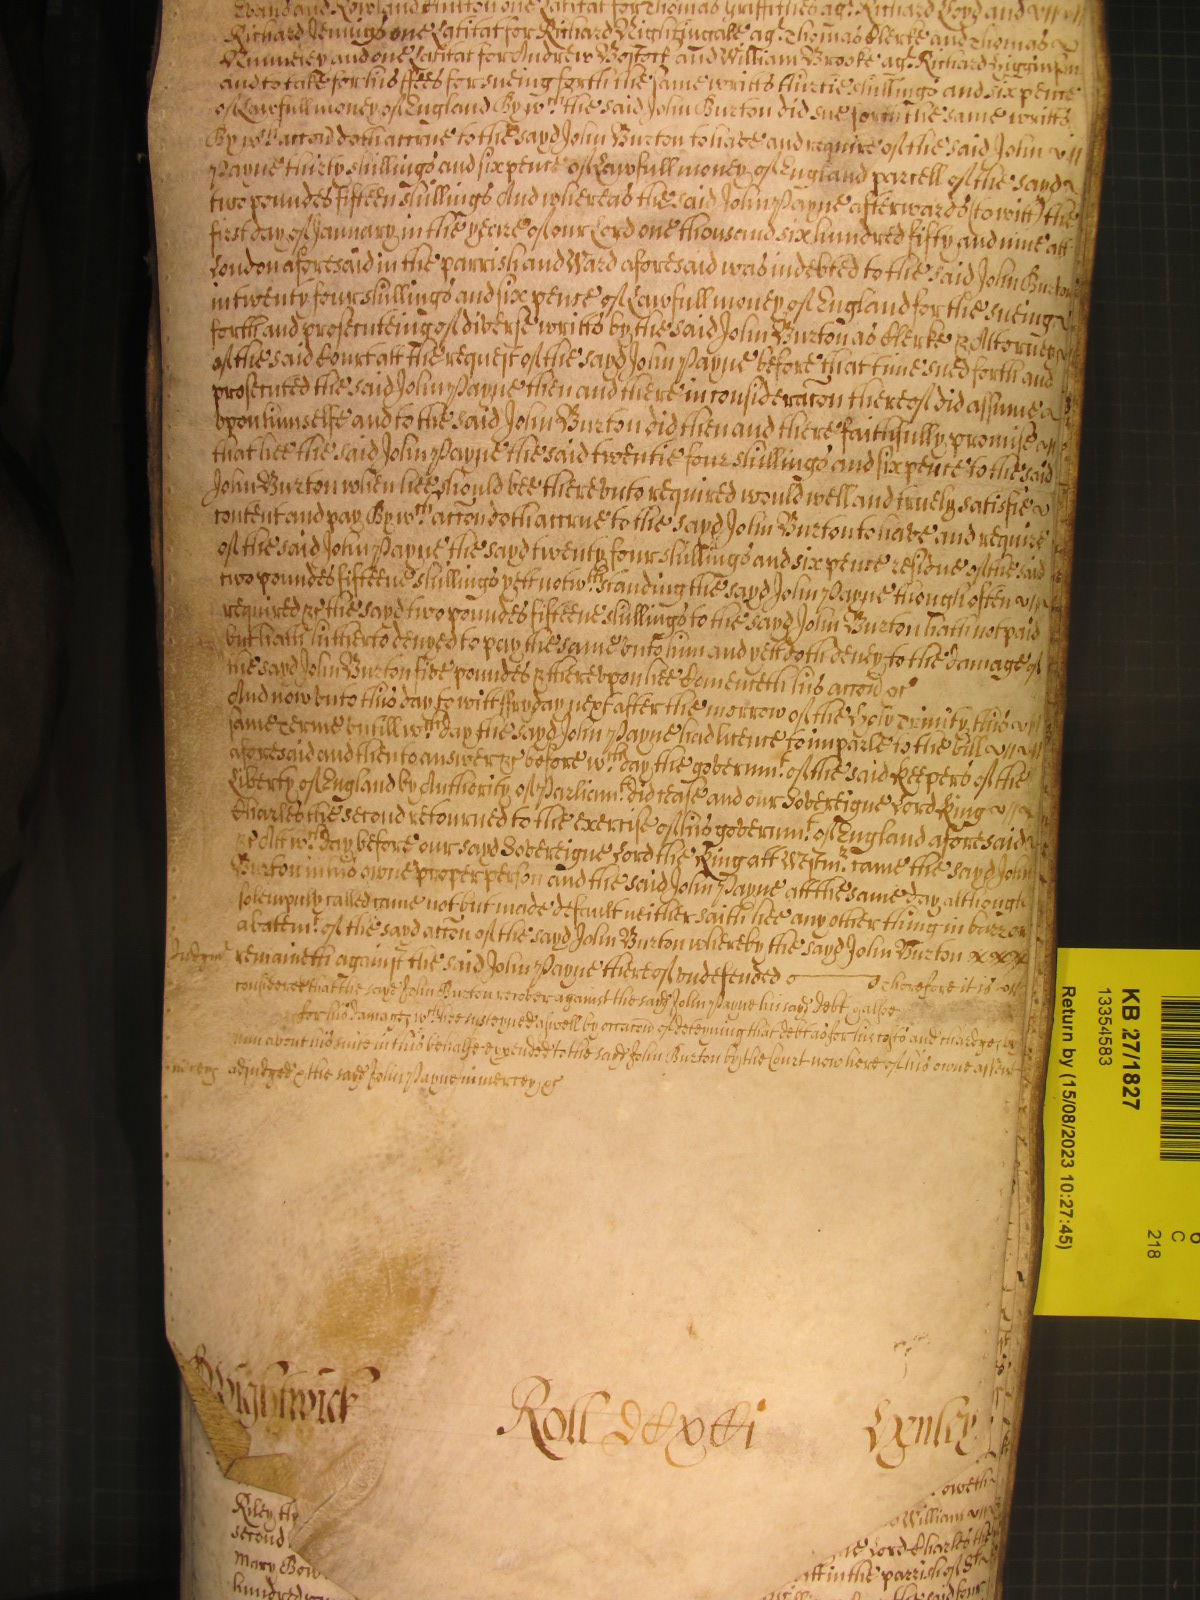 Evan and Rowland Hinton one Latitat for Thomas Griffithes agt. Richard Loyd and
Richard Jennings one Latitat for Richard Nightingale agt. Thomas Clerke and Thomas
Rumney and one Latitat for Andrew Bostock and William Brooke agt. Richard Higginson
and to take for his ffees for sueing forth the same writts thirtie shillings and six pence
of Lawfull money of England By wch. the said John Burton did sue forth the same writts
By wch. accon doth accrue to the sayd John Burton to have and require of the said John
Payne thirty shillings and six pence of Lawfull money of England parcell of the sayd
two poundes fifteen shillings And whereas the said John Payne afterwards to witt the
first day of January in the yeere of our Lord one thousand six hundred fifty and nine att
London aforesaid in the parrish and Ward aforesaid was indebted to the said John Burton
in twenty four shillings and six pence of Lawfull money of England for the sueing
forth and prosecuteing of diverse writts by the said John Burton as Clerke & Attorney
of the said Court att the request of the sayd John Payne before that time sued forth and
prosecuted the said John Payne then and there in consideracon thereof did assume
upon himselfe and to the said John Burton did then and there faithfully promise
that hee the said John Payne the said twentie four shillings and six pence to the said
John Burton when hee should bee thereunto required would well and truely satisfie
content and pay By wch. accon doth accrue to the sayd John Burton to have and require
of the said John Payne the sayd twenty four shillings and six pence residue of the said
two poundes fifteene shillings yett notwthstanding the sayd John Payne though often
required &c the sayd two poundes fifteene shillings to the sayd John Burton hath not paid
but hath hitherto denyed to pay the same unto him and yett doth deney to the damage of
the sayd John Burton five poundes & thereupon hee Comenceth his accon &c
And now unto this day to witt ffryday next after the morrow of the Holy Trinity this
same Terme untill wch. day the sayd John Payne had licence to imparle to the bill
aforesaid and then to answer &c before wch. day the governmt. of the said Keepers of the
Liberty of England by Authority of Parliamt. did cease and our Sovereigne Lord King
Charles the second retourned to the exercise of his governmt. of England aforesaid
&c Att wch. day before our sayd Sovereigne Lord the King att Westmr. came the sayd John
Burton in his owne proper person and the said John Payne att the same day although
solempnly called came not but made default neither saith hee any other thing in barr or
abatemt. of the sayd accon of the sayd John Burton whereby the sayd John Burton
Judgmt remaineth against the said John Payne thereof undefended Therefore it is
considered that the sayd John Burton recover against the sayd John Payne his sayd debt &
for his damages wch. hee susteyned aswell by occacon of deteyning that debt as for his costs and chardges by
him about his suite in this behalfe expended to the said John Burton by the Court now here of his owne assent
in mercy adjudged & the sayd John Payne in mercy &c
Wightwick Roll Lynley
Riley th
second
William
Mary Bow
Lord Charles the
hundred
att in the parrish of St
the said